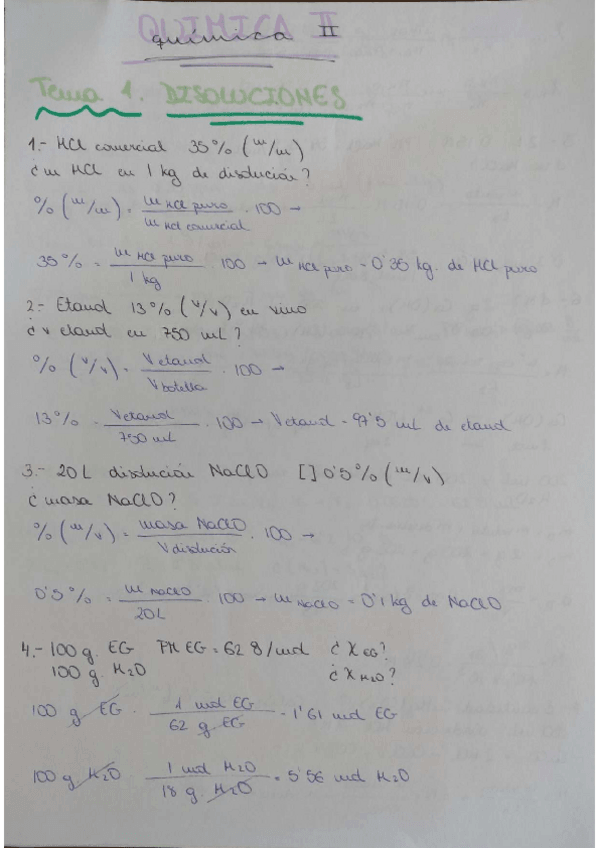 QUÍMICA II
química II
Tema 1. DISOLUCIONES
1.- HCl comercial 35% (m/m)
¿m HCl en 1 kg de disolución?
% (m/m) = m HCl puro / m HCl comercial · 100 →
35% = m HCl puro / 1 kg · 100 → m HCl puro = 0'35 kg. de HCl puro
2.- Etanol 13% (v/v) en vino
¿v etanol en 750 mL?
% (v/v) = V etanol / V botella · 100 →
13% = V etanol / 750 mL · 100 → V etanol = 97'5 mL de etanol
3.- 20L disolución NaClO [] 0'5% (m/v)
¿masa NaClO?
% (m/v) = masa NaClO / V disolución · 100 →
0'5% = m NaClO / 20L · 100 → m NaClO = 0'1 kg de NaClO
4.- 100 g. EG PM EG = 62 g/mol ¿X EG?
100 g. H2O ¿X H2O?
100 g EG · 1 mol EG / 62 g EG = 1'61 mol EG
100 g H2O · 1 mol H2O / 18 g. H2O = 5'56 mol H2O